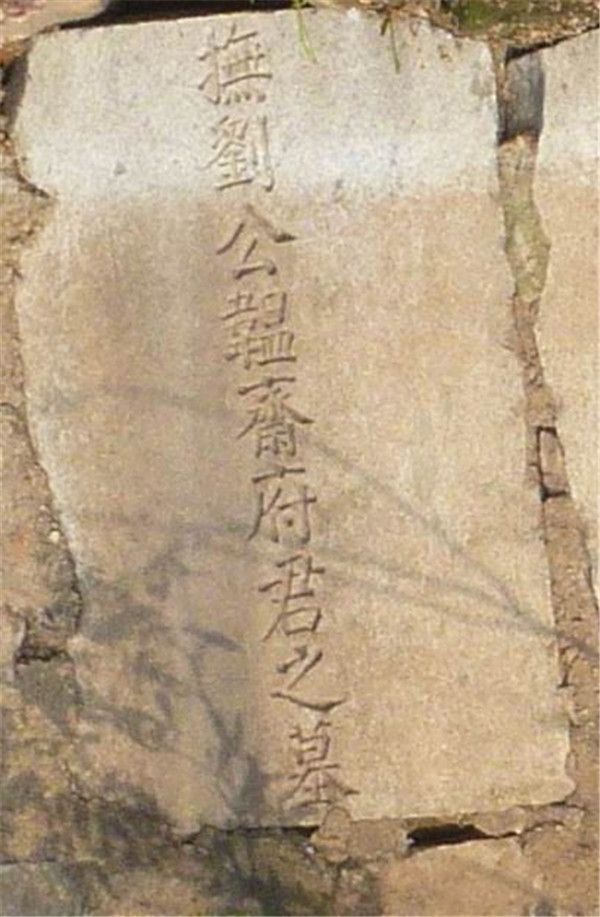 撫劉公韞齋府君之墓